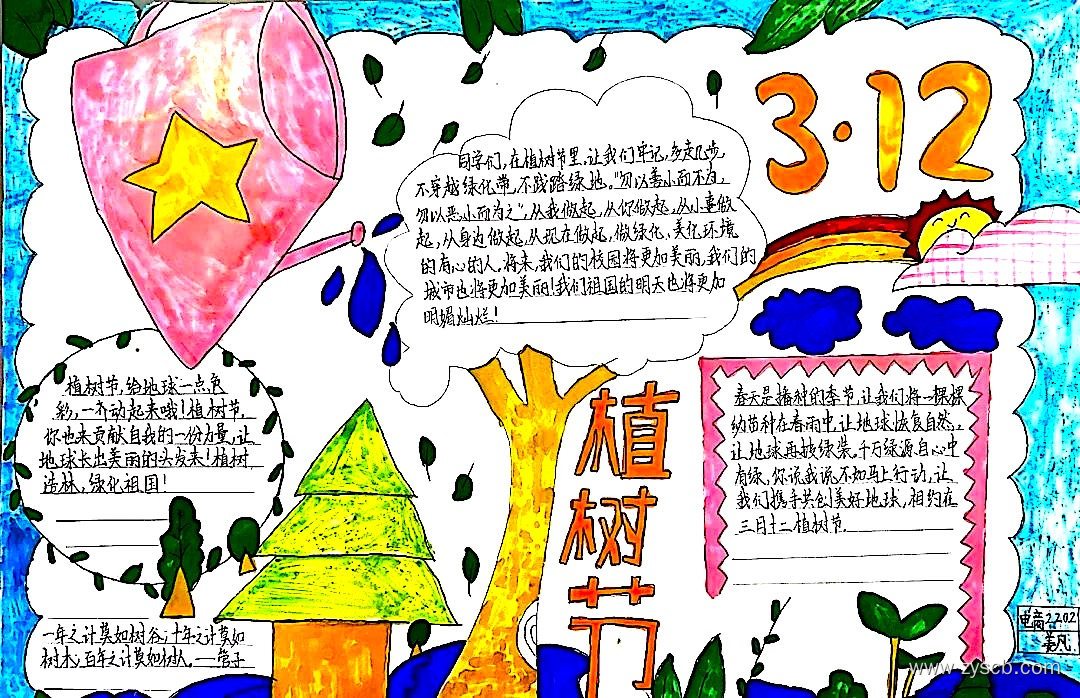 3·12
同学们,在植树节里,让我们牢记,多走几步,
不穿越绿化带,不践踏绿地。"勿以善小而不为,
勿以恶小而为之",从我做起,从你做起,从小事做
起,从身边做起,从现在做起,做绿化、美化环境
的有心的人,将来,我们的校园将更加美丽,我们的
城市也将更加美丽!我们祖国的明天也将更加
明媚灿烂!
植树节,给地球一点色
彩,一齐动起来哦!植树节,
你也来贡献自我的一份力量,让
地球长出美丽的头发来!植树
造林,绿化祖国!
植树节
春天是播种的季节,让我们将一棵棵
幼苗种在春雨中,让地球恢复自然,
让地球再披绿装,千万绿源自心中
有绿,你说我说,不如马上行动,让
我们携手共创美好地球,相约在
三月十二植树节.
一年之计莫如树谷;十年之计莫如
树木;百年之计莫如树人。——管子
电商2202
姜凡
www.zyscb.com